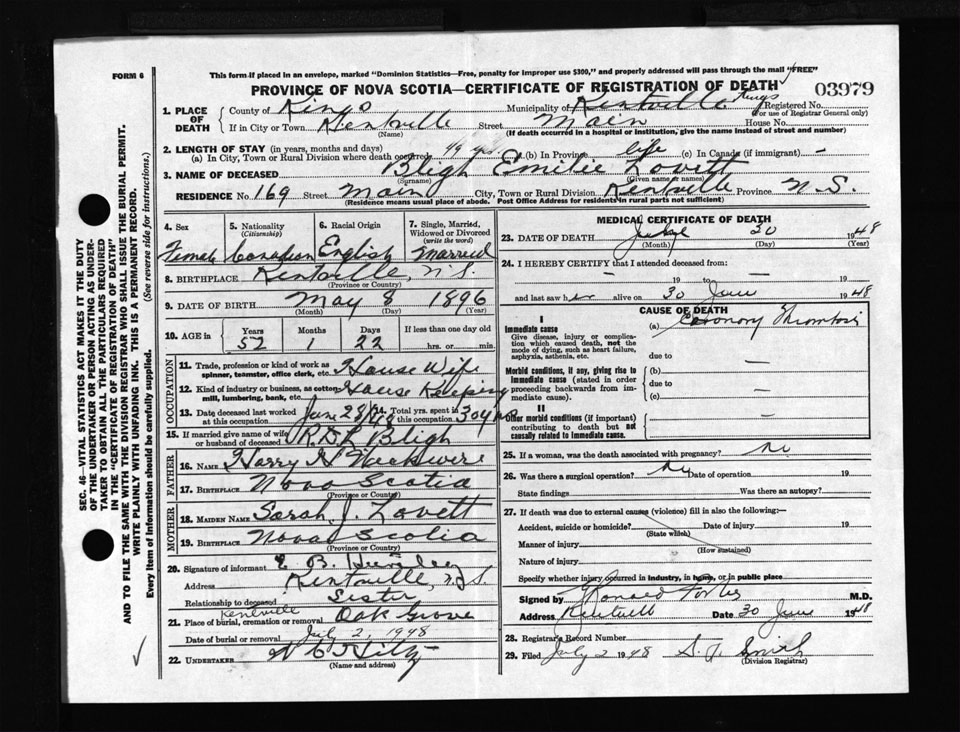 FORM 6
This form if placed in an envelope, marked "Dominion Statistics—Free, penalty for improper use $300," and properly addressed will pass through the mail "FREE"
PROVINCE OF NOVA SCOTIA—CERTIFICATE OF REGISTRATION OF DEATH
03979
1. PLACE OF DEATH
County of Kings Municipality of Kentville Kings Registered No.
(For use of Registrar General only)
If in City or Town Kentville Street Main House No.
(Name) (If death occurred in a hospital or institution, give the name instead of street and number)
2. LENGTH OF STAY (in years, months and days)
(a) In City, Town or Rural Division where death occurred 49 yrs. (b) In Province life (c) In Canada (if immigrant) —
3. NAME OF DECEASED Bligh Emilie Lovett
(Surname) (Given name or names)
RESIDENCE No. 169 Street Main City, Town or Rural Division Kentville Province N.S.
(Residence means usual place of abode. Post Office Address for residents in rural parts not sufficient)
4. Sex
Female
5. Nationality
(Citizenship)
Canadian
6. Racial Origin
English
7. Single, Married, Widowed or Divorced
(write the word)
Married
8. BIRTHPLACE Kentville, N.S.
(Province or Country)
9. DATE OF BIRTH May 8 1896
(Month) (Day) (Year)
10. AGE in
Years Months Days If less than one day
52 1 22 hrs. or min.
OCCUPATION
11. Trade, profession or kind of work as spinner, teamster, office clerk, etc. House Wife
12. Kind of industry or business, as cotton mill, lumbering, bank, etc. House Keeping
13. Date deceased last worked at this occupation June 28/48 14. Total yrs. spent in this occupation 30 yrs
15. If married give name of wife or husband of deceased R.D.L. Bligh
FATHER
16. NAME Harry H Wickwire
17. BIRTHPLACE Nova Scotia
(Province or Country)
MOTHER
18. MAIDEN NAME Sarah J. Lovett
19. BIRTHPLACE Nova Scotia
(Province or Country)
20. Signature of informant E B
Address Kentville, N.S.
Relationship to deceased Sister
21. Place of burial, cremation or removal Kentville Oak Grove
Date of burial or removal July 2, 1948
22. UNDERTAKER
(Name and address)
MEDICAL CERTIFICATE OF DEATH
23. DATE OF DEATH June 30 1948
(Month) (Day) (Year)
24. I HEREBY CERTIFY that I attended deceased from:
— 19 to — 19
and last saw her alive on 30 June 1948
CAUSE OF DEATH
I
Immediate cause
Give disease, injury or complication which caused death, not the mode of dying, such as heart failure, asphyxia, asthenia, etc.
(a) Coronary Thrombosis
due to
Morbid conditions, if any, giving rise to immediate cause (stated in order proceeding backwards from immediate cause).
(b) —
due to
(c) —
II
Other morbid conditions (if important) contributing to death but not causally related to immediate cause.
—
25. If a woman, was the death associated with pregnancy? no
26. Was there a surgical operation? no Date of operation 19
State findings Was there an autopsy?
27. If death was due to external causes (violence) fill in also the following:—
Accident, suicide or homicide? Date of injury 19
(State which)
Manner of injury
(How sustained)
Nature of injury
Specify whether injury occurred in industry, in home, or in public place
Signed by M.D.
Address Kentville Date 30 June 1948
28. Registrar's Record Number
29. Filed July 2 1948 Smith
(Division Registrar)
SEC. 46—VITAL STATISTICS ACT MAKES IT THE DUTY
OF THE UNDERTAKER OR PERSON ACTING AS UNDER-
TAKER TO OBTAIN ALL THE PARTICULARS REQUIRED
IN THE "CERTIFICATE OF REGISTRATION OF DEATH"
AND TO FILE THE SAME WITH THE DIVISION REGISTRAR WHO SHALL ISSUE THE BURIAL PERMIT.
WRITE PLAINLY WITH UNFADING INK. THIS IS A PERMANENT RECORD.
Every item of Information should be carefully supplied. (See reverse side for instructions.)